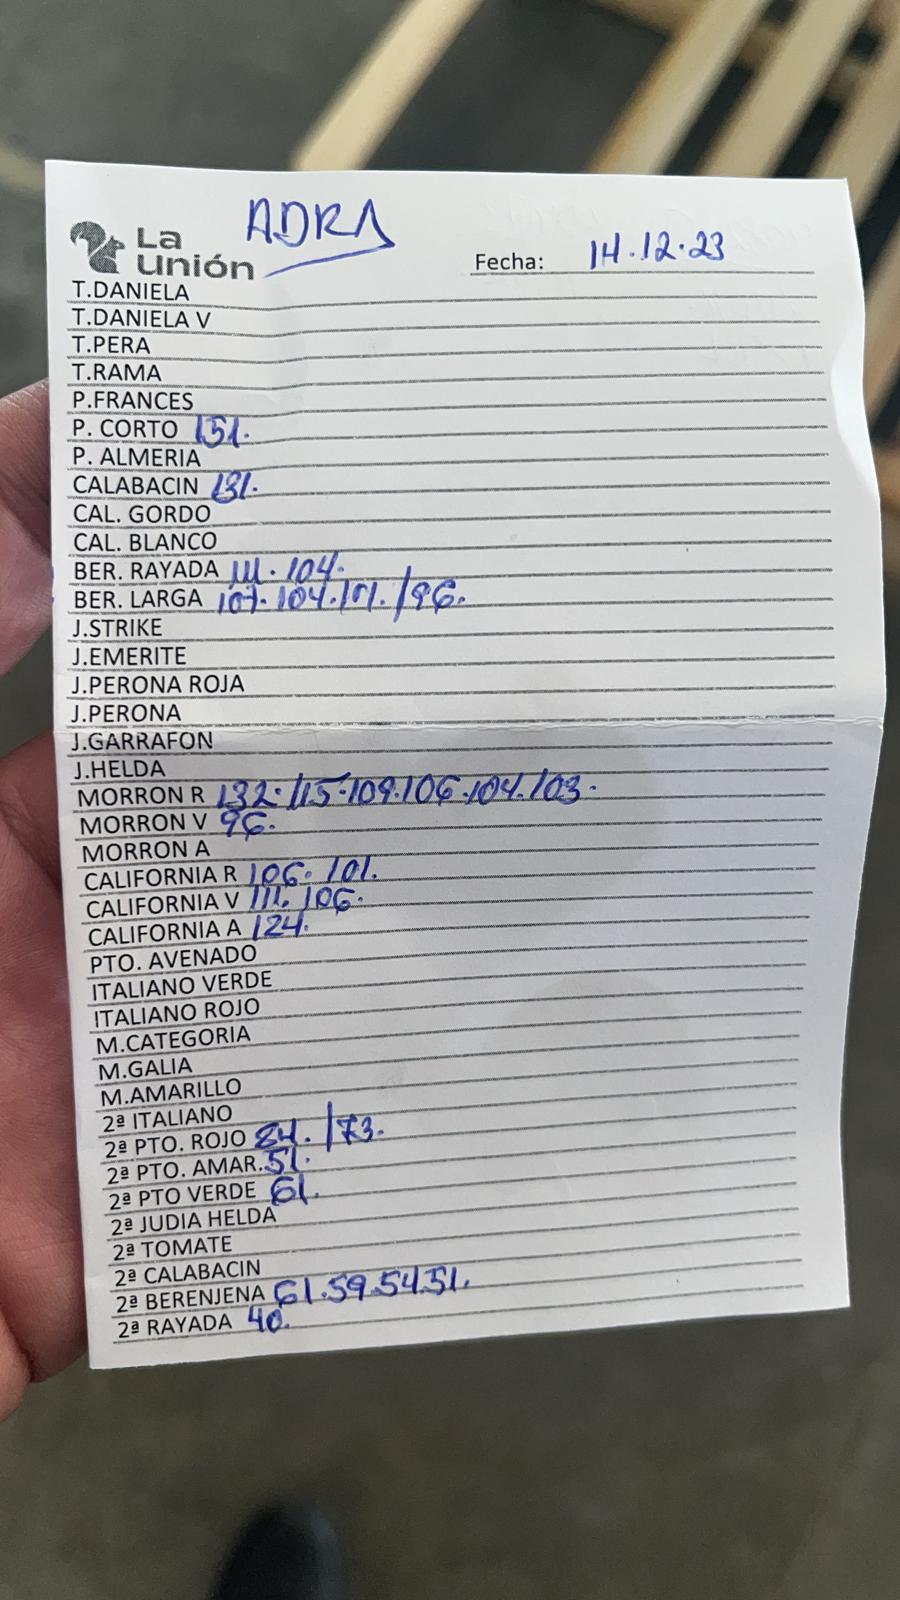 La
unión
ADRA
Fecha: 14.12.23
T.DANIELA
T.DANIELA V
T.PERA
T.RAMA
P.FRANCES
P. CORTO 151.
P. ALMERIA
CALABACIN 131.
CAL. GORDO
CAL. BLANCO
BER. RAYADA 111. 104.
BER. LARGA 107. 104.101. /96.
J.STRIKE
J.EMERITE
J.PERONA ROJA
J.PERONA
J.GARRAFON
J.HELDA
MORRON R 132. 115.109.106.104.103.
MORRON V 96.
MORRON A
CALIFORNIA R 106. 101.
CALIFORNIA V 111. 106.
CALIFORNIA A 124.
PTO. AVENADO
ITALIANO VERDE
ITALIANO ROJO
M.CATEGORIA
M.GALIA
M.AMARILLO
2ª ITALIANO
2ª PTO. ROJO 84. /73.
2ª PTO. AMAR. 51.
2ª PTO VERDE 61.
2ª JUDIA HELDA
2ª TOMATE
2ª CALABACIN
2ª BERENJENA 61.59.54.51.
2ª RAYADA 40.